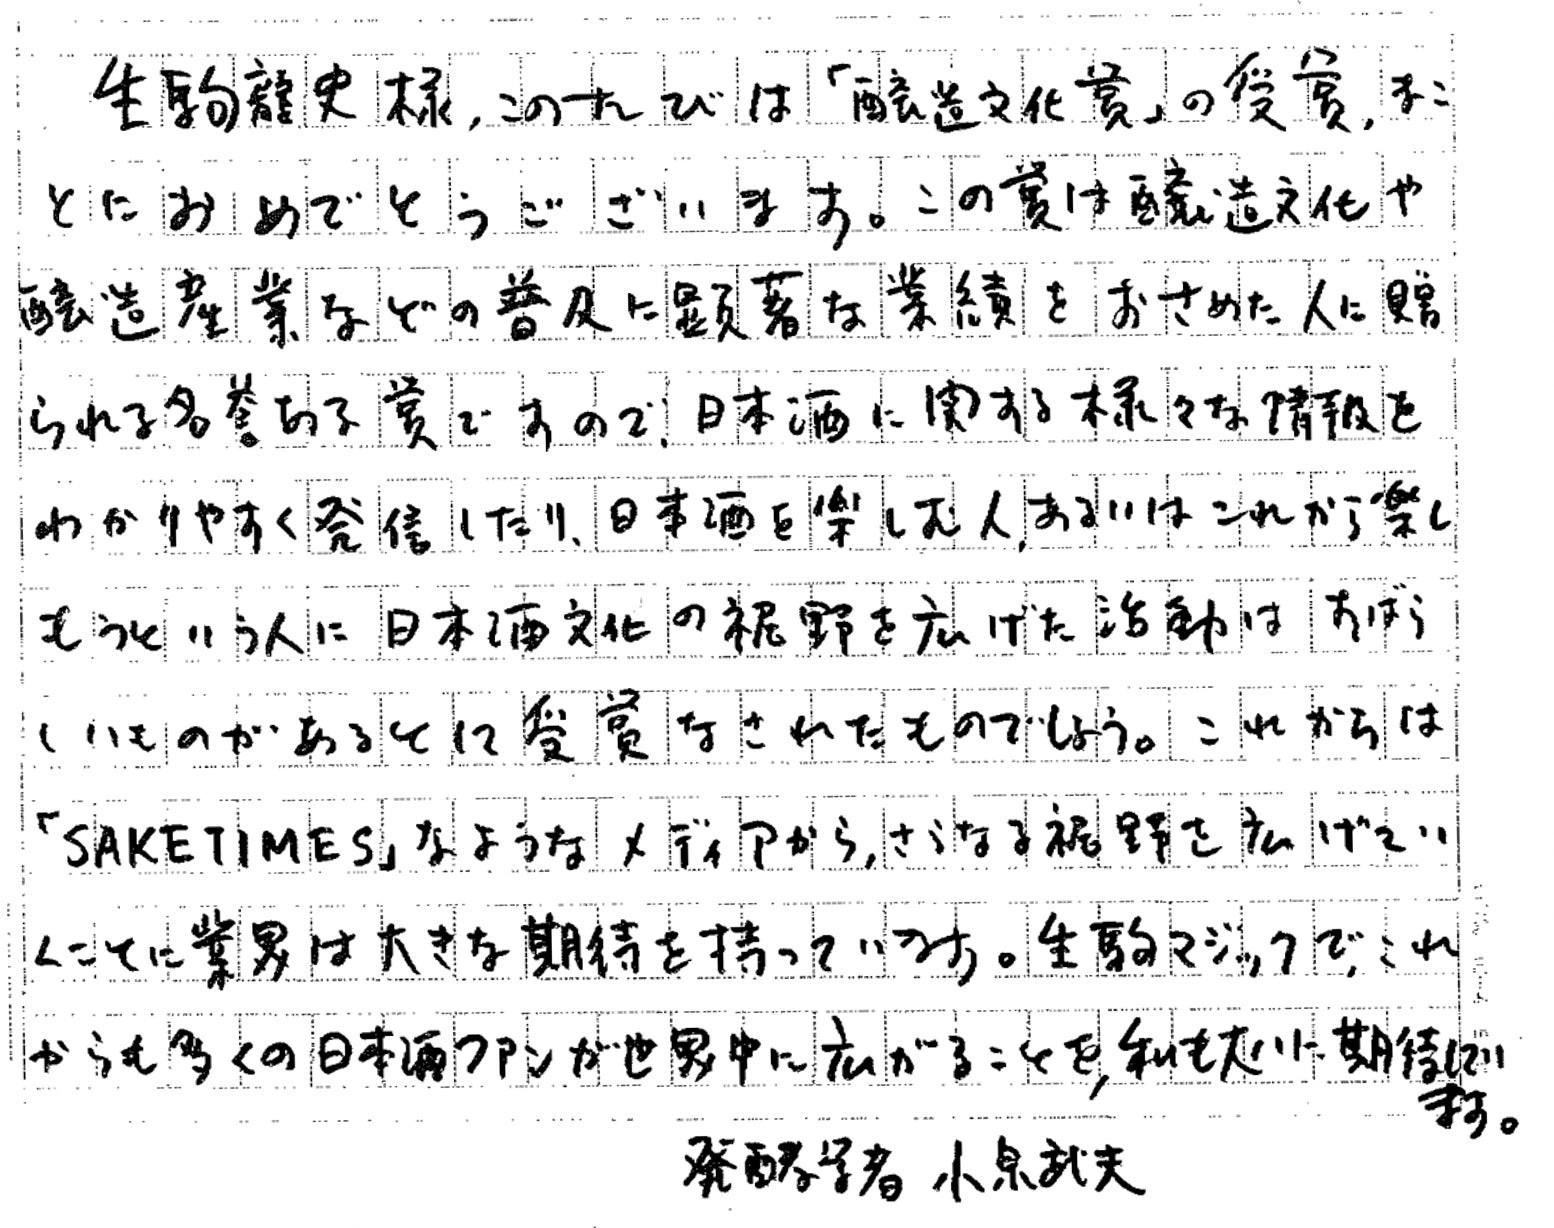 生駒龍史様,このたびは「醸造文化賞」の受賞,まこ
とにおめでとうございます。この賞は醸造文化や
醸造産業などの普及に顕著な業績をおさめた人に贈
られる名誉ある賞ですので、日本酒に関する様々な情報を
わかりやすく発信したり、日本酒を楽しむ人,あるいはこれから楽し
もうという人に日本酒文化の裾野を広げた活動はすばら
しいものがあるとして受賞なされたものでしょう。これからは
「SAKETIMES」なようなメディアから,さらなる裾野を広げてい
くことに業界は大きな期待を持っています。生駒マジックで,これ
からも多くの日本酒ファンが世界中に広がることを,私も大いに期待してい
ます。
発酵学者 小泉武夫